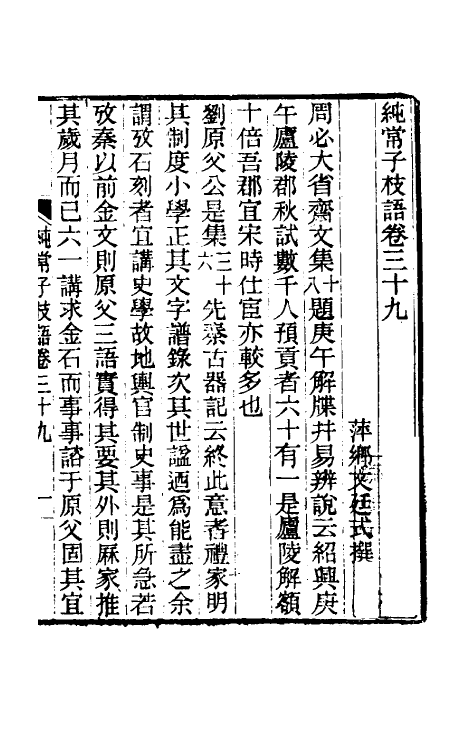 純常子枝語卷三十九
萍鄉文廷式撰
周必大省齋文集十八題庚午解牒并易辨說云紹興庚
午廬陵郡秋試數千人預貢者六十有一是廬陵解額
十倍吾郡宜宋時仕宦亦較多也
劉原父公是集三十六先秦古器記云終此意者禮家明
其制度小學正其文字譜錄次其世謚迺爲能盡之余
謂攷石刻者宜講史學故地輿官制史事是其所急若
攷秦以前金文則原父三語實得其要其外則厤家推
其歲月而已六一講求金石而事事諮于原父固其宜
純常子枝語卷三十九 一